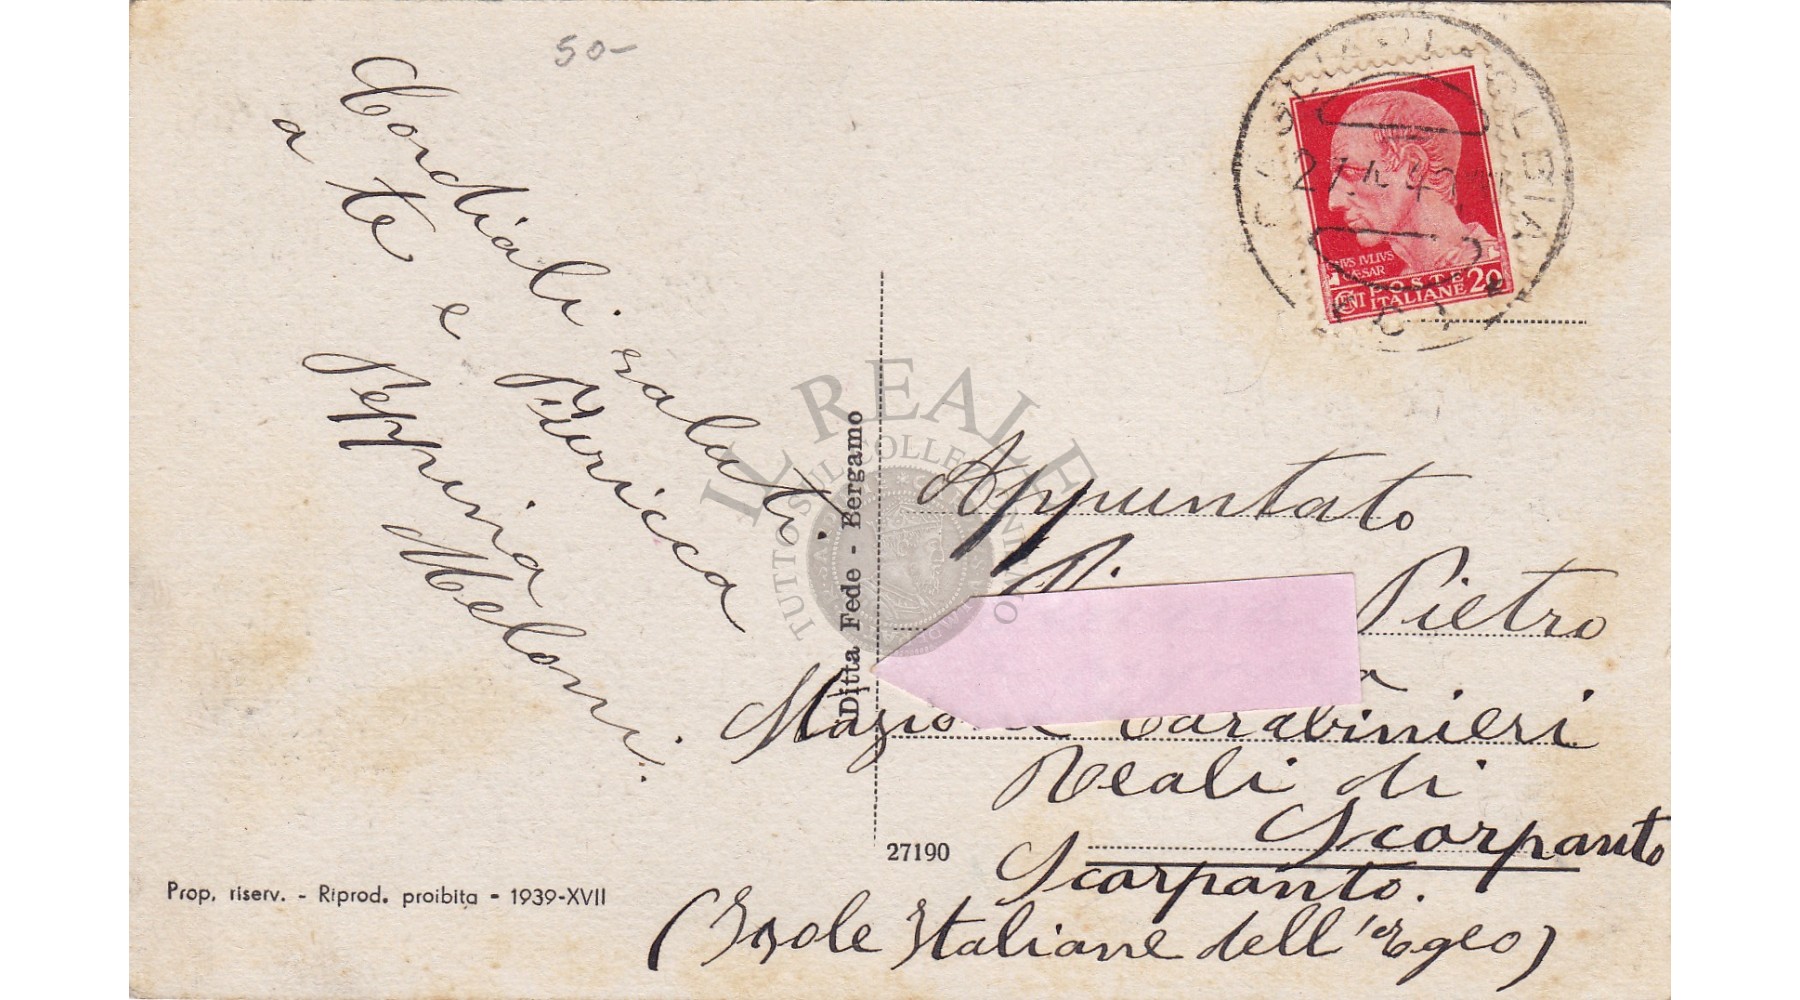 50-
Cordiali saluti
a te e Piericca
Peppina
Meloni.
IVS IVLIVS
CAESAR
POSTE
CENT ITALIANE 20
OLBIA
IL REALE
TUTTO SUL COLLEZIONISMO
Ditta Fede - Bergamo
Appuntato
Pietro
Carabinieri
Reali di
Scarpanto
Scarpanto.
(Isole Italiane dell'Egeo)
27190
Prop. riserv. - Riprod. proibita - 1939-XVII